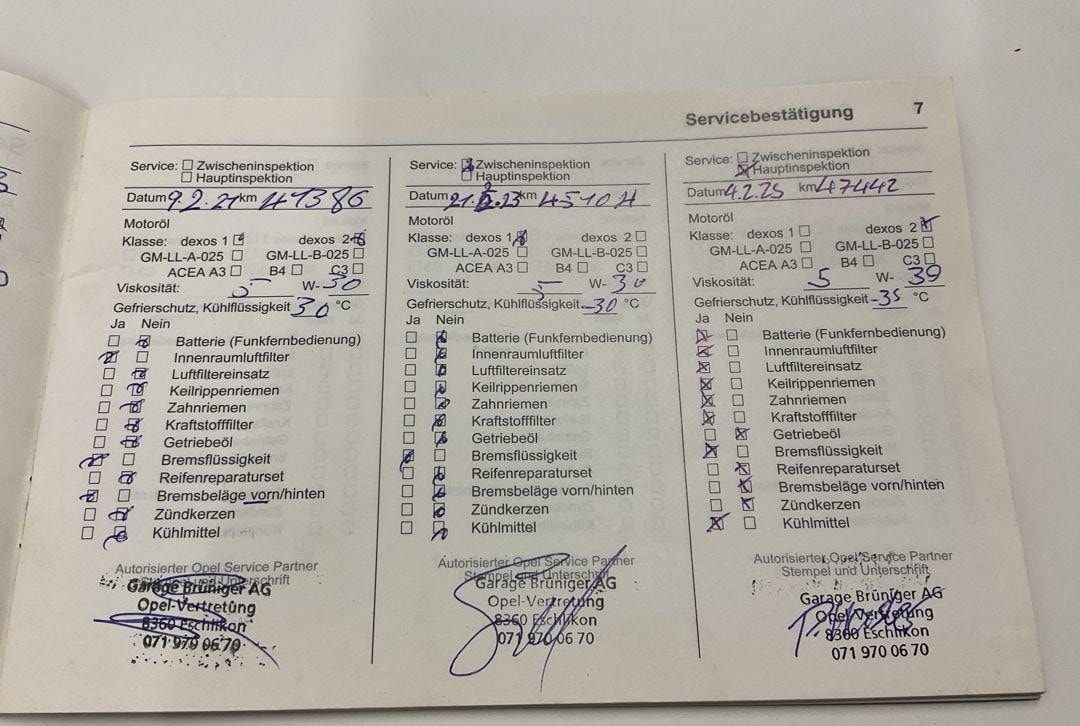 Servicebestätigung 7
Service: Zwischeninspektion
Hauptinspektion
Datum 9.2.21 km 41386
Motoröl
Klasse: dexos 1 dexos 2
GM-LL-A-025 GM-LL-B-025
ACEA A3 B4 C3
Viskosität: 5 W- 30
Gefrierschutz, Kühlflüssigkeit 30 °C
Ja Nein
Batterie (Funkfernbedienung)
Innenraumluftfilter
Luftfiltereinsatz
Keilrippenriemen
Zahnriemen
Kraftstofffilter
Getriebeöl
Bremsflüssigkeit
Reifenreparaturset
Bremsbeläge vorn/hinten
Zündkerzen
Kühlmittel
Autorisierter Opel Service Partner
Stempel und Unterschrift
Garage Brüniger AG
Opel-Vertretung
8360 Eschlikon
071 970 06 70
Service: Zwischeninspektion
Hauptinspektion
Datum km
Motoröl
Klasse: dexos 1 dexos 2
GM-LL-A-025 GM-LL-B-025
ACEA A3 B4 C3
Viskosität: 5 W- 30
Gefrierschutz, Kühlflüssigkeit -30 °C
Ja Nein
Batterie (Funkfernbedienung)
Innenraumluftfilter
Luftfiltereinsatz
Keilrippenriemen
Zahnriemen
Kraftstofffilter
Getriebeöl
Bremsflüssigkeit
Reifenreparaturset
Bremsbeläge vorn/hinten
Zündkerzen
Kühlmittel
Autorisierter Opel Service Partner
Stempel und Unterschrift
Garage Brüniger AG
Opel-Vertretung
8360 Eschlikon
071 970 06 70
Service: Zwischeninspektion
Hauptinspektion
Datum 4.2.25 km 47442
Motoröl
Klasse: dexos 1 dexos 2
GM-LL-A-025 GM-LL-B-025
ACEA A3 B4 C3
Viskosität: 5 W- 30
Gefrierschutz, Kühlflüssigkeit -35 °C
Ja Nein
Batterie (Funkfernbedienung)
Innenraumluftfilter
Luftfiltereinsatz
Keilrippenriemen
Zahnriemen
Kraftstofffilter
Getriebeöl
Bremsflüssigkeit
Reifenreparaturset
Bremsbeläge vorn/hinten
Zündkerzen
Kühlmittel
Autorisierter Opel Service Partner
Stempel und Unterschrift
Garage Brüniger AG
Opel-Vertretung
8360 Eschlikon
071 970 06 70